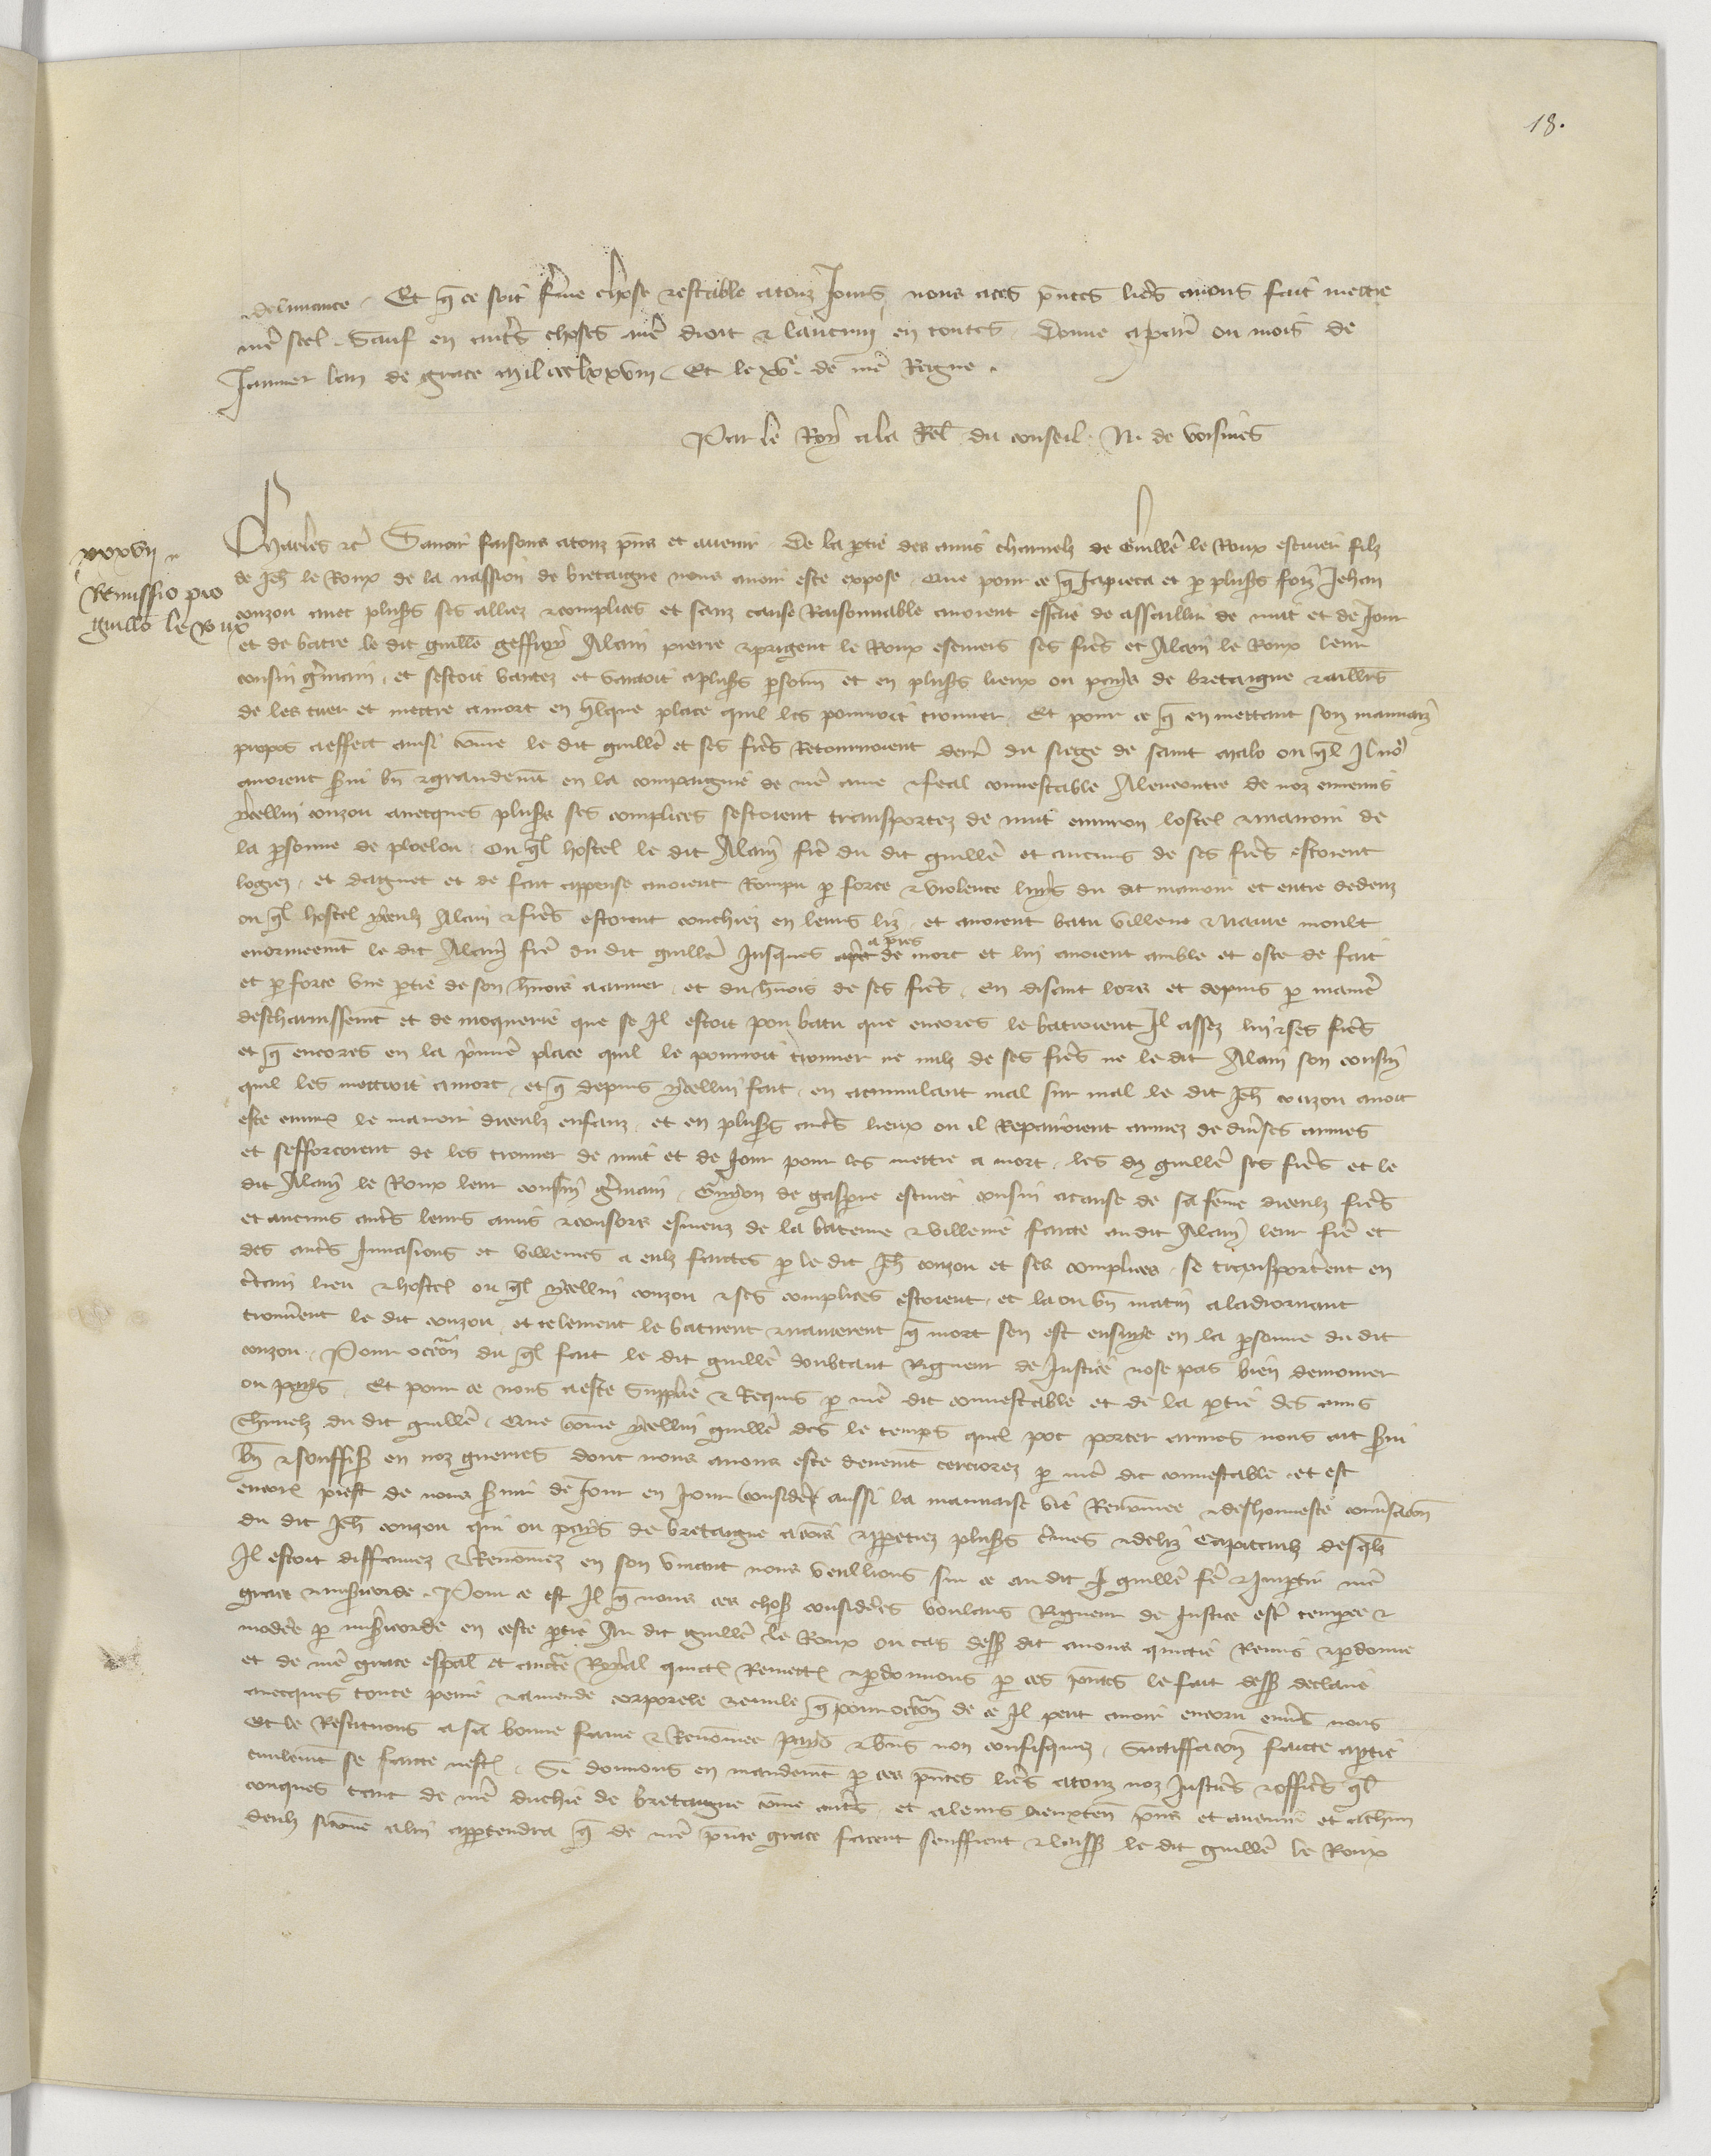 18.
delivrance. Et q̃ ce soit ferme chose & estable a touz jours nous a ces p̃ntes lres avons fait mettre
nr̃e seel. Sauf en autr̃s choses nr̃e droit & lautruy en toutes. Donne a paris ou mois de
Janvier lan de grace mil ccclxxviii. Et le xvᵉ de nr̃e Regne.
Par le Roy a la Rel̃ du conseil. N. de voisines
xxxvii
Remissio pro
guill̃o le Roux
Charles &c̃ Savoir faisons a touz p̃ns et avenir. De la p̃tie des amis charnelz de Guill̃e le Roux escuier filz
de Jeh̃ le Roux de la nassion de bretaigne nous avoir este expose. Que pour ce q̃ Ja pieca et p̃ plus̃s foiz Jehan
couzou avec plus̃s ses alliez & complices et sanz cause Raisonnable avoient essaie de assaillir de nuit et de Jour
et de batre le dit guill̃e geffroy Alain pierre & prigent le Roux escuiers ses frer̃s et Alain le Roux leur
cousin g̃main, et sestoit vantez et vantoit a plus̃s p̃sonn̄ et en plus̃s lieux ou pays de bretaigne & aillr̃s
de les tuer et mettre a mort en q̃lque place quil les pourroit trouver. Et pour ce q̃ en mettant son mauvaiz
propos a effect ainsi com̃e le dit guill̃e et ses frer̃s Retournoient derr̃ du siege de saint malo ou q̃l Il nõ
avoient s̃vi bn̄ & grandem̃t en la compaignie de nr̃e ame & feal connestable A lencontre de noz ennemis
ycellui couzou avecques plus̃s ses complices sestoient transportez de nuit environ lostel & manoir de
la p̃sonne de ploelou. Ou q̃l hostel le dit Alain fr̃e du dit guill̃e et aucuns de ses frer̃s estoient
logiez. et daguet et de fait appense avoient Rompu p̃ force & violence luys du dit manoir et entre dedenz
ou q̃l hostel yceulz Alain & frer̃s estoient couchiez en leurs liz. et avoient batu villene & navre moult
enormeem̃t le dit Alain fr̃e du dit guill̃e Jusques a pres de mort et lui avoient emble et oste de fait
et p̃ force une p̃tie de son h̃nois a armer. et du h̃nois de ses frer̃s. En disant lors et depuis p̃ manier̃
descharnissem̃t et de moquerie que se Il estoit pou batu que encores le batroient Il assez lui & ses frer̃s
et q̃ encores en la p̃mier̃ place quil le pourroit trouver ne nulz de ses frer̃s ne le dit Alain son cousin
quil les mettroit a mort. et q̃ depuis ycellui fait. en acumulant mal sur mal le dit Jeh̃ couzou avoit
este envir̃ le manoir diceulz enfanz. et en plus̃s autr̃s lieux ou il Repairoient armez de diṽses armes
et sefforcoient de les trouver de nuit et de Jour pour les mettre a mort. les diz guill̃e ses frer̃s et le
dit Alain le Roux leur cousin g̃main. Guyon de gaspre escuier cousin a cause de sa fem̃e diceulz frer̃s
et aucuns autr̃s leurs amis & consors esmeuz de la bateure & villenie faicte au dit Alain leur fr̃e et
des autr̃s Invasions et villenies a eulz faictes p̃ le dit Jeh̃ couzou et ses complices. se transporter̃ent en
c̃tain lieu & hostel ou q̃l ycellui couzou & ses complices estoient. et la ou bn̄ matin a ladiornant
trouver̃ent le dit couzou. et telement le batirent & navrerent q̃ mort sen est ensuye en la p̃sonne du dit
couzou. Pour occõn du q̃l fait le dit guill̃e doubtant Rigueur de Justice nose pas bien demourer
ou pays. Et pour ce nous a este Supplie & Requis p̃ nr̃e dit connestable et de la p̃tie des amis
charnelz du dit guill̃e. Que com̃e ycellui guill̃e des le temps quil pot porter armes nous ait s̃vi
bn̄ & souffis̃ en noz guerres dont nous avons este deuem̃t cerciorez p̃ nr̃e dit connestable. et est
encor̃ prest de nous s̃vir de Jour en Jour Consider̃ aussi la mauvaise vie Renom̃ee & deshonneste conṽsacõn
du dit Jeh̃ couzou qui ou pays de bretaigne a com̃is & p̃petrez plus̃s crimes & deliz Capitaulz desq̃lz
Il estoit diffamez & Renom̃ez en son vivant nous veillions sur ce au dit guill̃e fr̃e & Imp̃tir nr̃e
grace & mis̃icorde. Pour ce est Il q̃ nous ces chos̃ consider̃es voulans Rigueur de Justice estr̃ temper̃e &
moder̃e p̃ mis̃icorde en ceste p̃tie Au dit guill̃e le Roux ou cas dess̃ dit avons quictie Remis & p̃donne
et de nr̃e grace esp̃al et auct̃e Royal quict̃ Remett̃ & p̃donnons p̃ ces p̃ntes le fait dess̃ declaire
avecques toute peine & amende corporele & civile q̃ pour occõn de ce Il peut avoir encoru env̄s nous
Et le Restituons a sa bonne fame & Renom̃ee pays & bn̄s non confisquez. Satiffacõn faicte a p̃tie
civilem̃t se faicte nest. Si donnons en mandem̃t p̃ ces p̃ntes lr̃es a touz noz Justicer̃s & officer̃s q̃l
conques tant de nr̃e duchie de bretaigne com̃e autr̃s. et a leurs lieuxten̄ p̃ns et avenir et a chun̄
deulz si com̃e a lui app̃tendra q̃ de nr̃e p̃nte grace facent seuffrent & laiss̃ le dit guill̃e le Roux